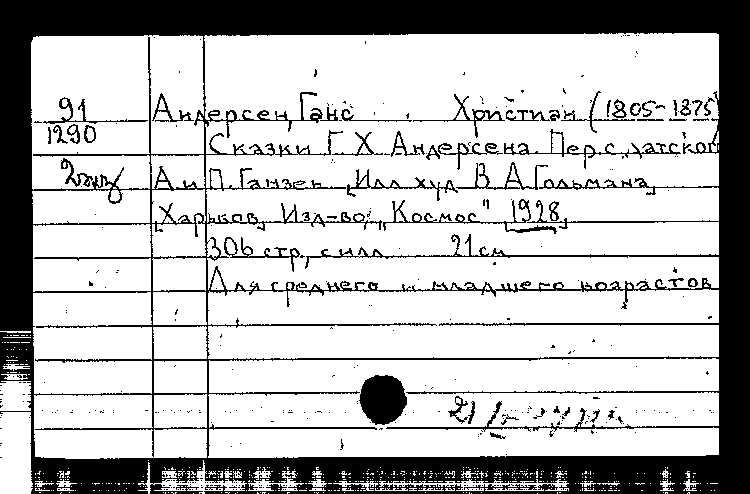 91 Андерсен, Ганс Христиан (1805-1875
1290 Сказки Г. Х. Андерсена. Пер. с датског
2экз А. и П. Ганзен [Илл. худ. В. А. Гольмана]
[Харьков] Изд-во „Космос" [1928]
306 стр., с илл. 21 см
Для среднего и младшего возрастов
21